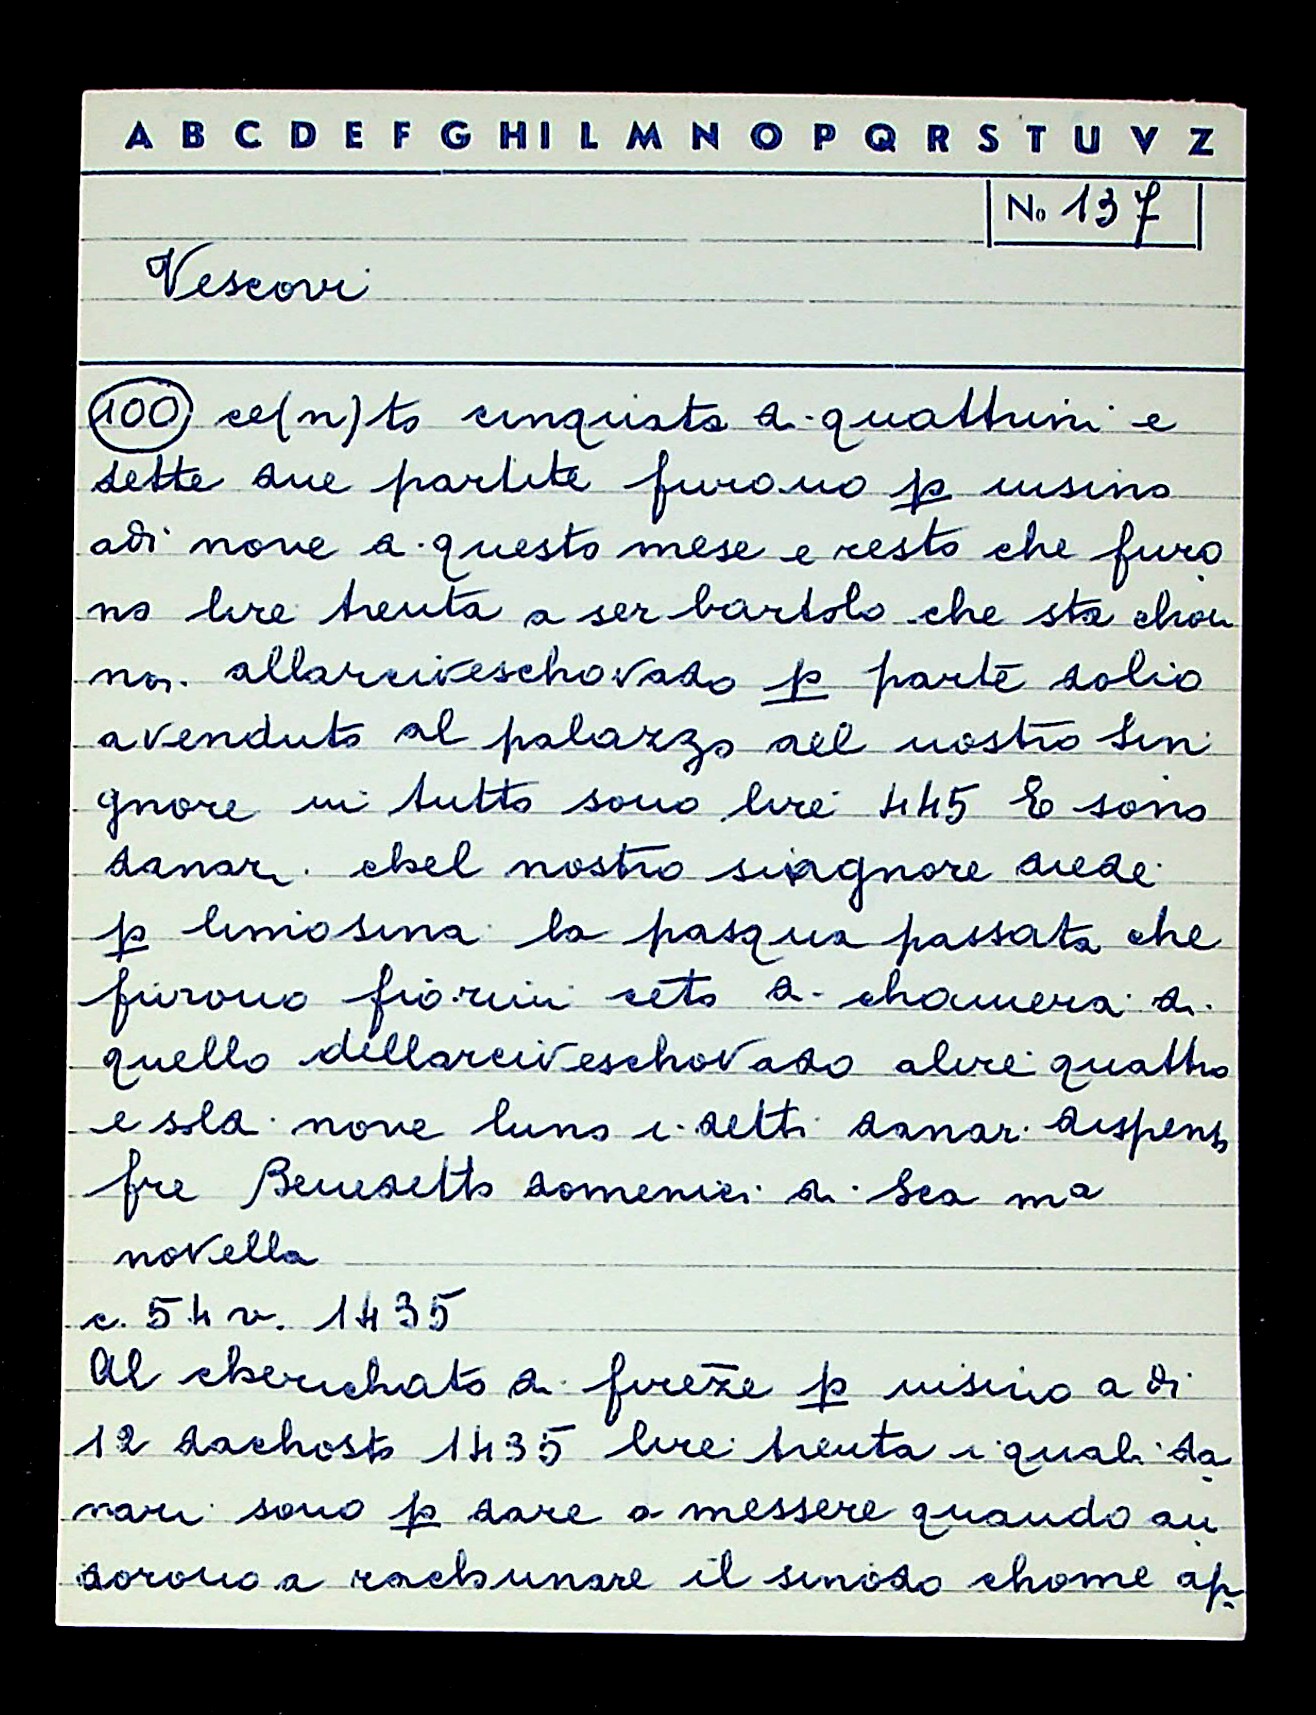 A B C D E F G H I L M N O P Q R S T U V Z
No 137
Vescovi
100 ce(n)to cinquāta di quattrini e
sette due partite furono p insino
adi nove di questo mese e resto che furo
no lire trenta a ser bartolo che sta chon
noi allarciveschovado p parte dolio
avenduto al palazzo del nostro Sin
gnore in tutto sono lire 445 E sono
danari chel nostro singnore diede
p limosina la pasqua passata che
furono fiorini ceto di chamera di
quello dellarciveschovado alire quattro
e soldi nove luno i detti danari dispensò
fre Benedetto domenici di Sca mᵃ
novella
c. 54 v. 1435
Al cherichato di fireze p insino a di
12 dachosto 1435 lire trenta i quali da
nari sono p dare a messere quando an
dorono a rachunare il sinodo chome ap